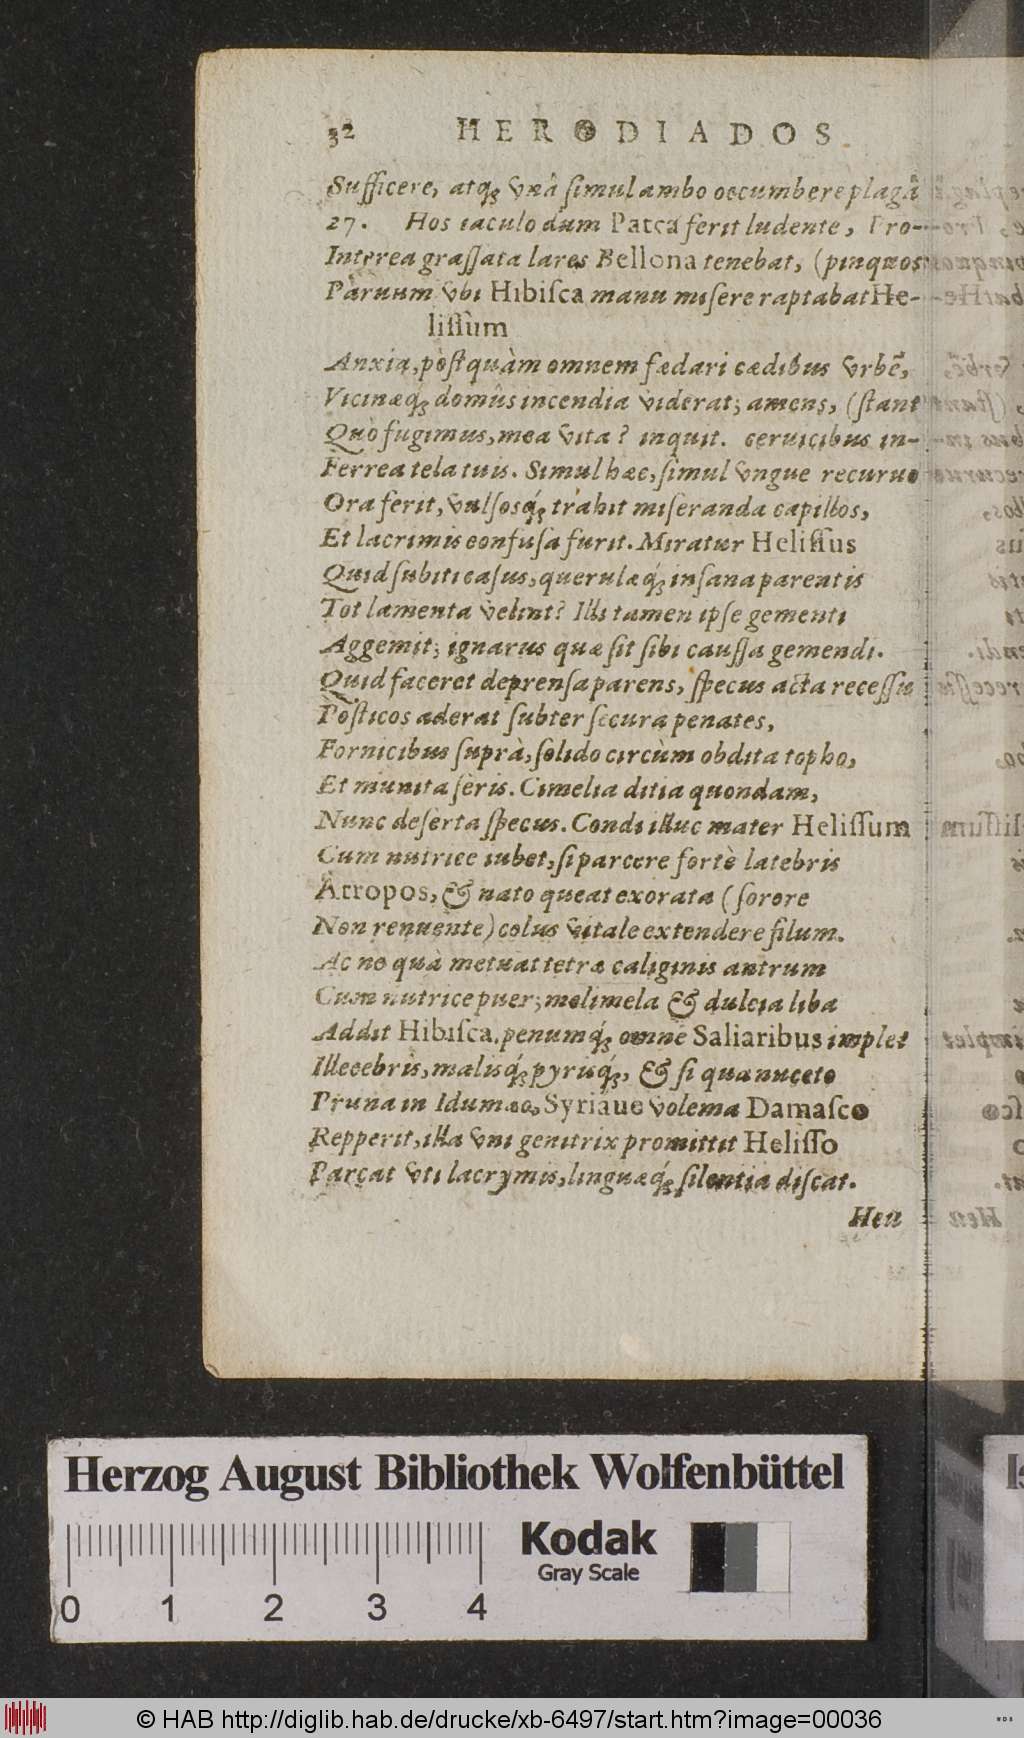 32 HERODIADOS
Sufficere, atq́; vnâ ſimul ambo occumbere plagâ
27. Hos iaculo dum Parca ferit ludente, Pro-
Interea graſſata lares Bellona tenebat, (pinquos
Paruum vbi Hibiſca manu miſere raptabat He-
liſſum
Anxia, pòſtquàm omnem fædari cædibus vrbē,
Vicinæq́; domûs incendia viderat; amens, (ſtant
Quò fugimus, mea vita? inquit. ceruicibus in-
Ferrea tela tuis. Simul hæc, ſimul vngue recuruo
Ora ferit, vulſosq́; trahit miſeranda capillos,
Et lacrimis confuſa furit. Miratur Heliſſus
Quid ſubiti caſus, querulæq́; inſana parentis
Tot lamenta velint? Illi tamen ipſe gementi
Aggemit; ignarus quæ ſit ſibi cauſſa gemendi.
Quid faceret deprenſa parens, ſpecus acta receſſu
Pòſticos aderat ſubter ſecura penates,
Fornicibus ſuprà, ſolido circùm obdita topho,
Et munita ſeris. Cimelia ditia quondam,
Nunc deſerta ſpecus. Condi illuc mater Heliſſum
Cum nutrice iubet, ſi parcere fortè latebris
Atropos, & nato queat exorata (ſorore
Non renuente) colus vitale extendere filum.
Ac ne quà metuat tetræ caliginis antrum
Cum nutrice puer; melimela & dulcia liba
Addit Hibiſca, penumq́; omne Saliaribus implet
Illecebris, malisq́; pyrisq́;, & ſi qua nuceto
Pruna in Idumæo, Syriáue volema Damaſco
Repperit, illa vni genitrix promittit Heliſſo
Parcat vti lacrymis, linguæq́; ſilentia diſcat.
Heu
Herzog August Bibliothek Wolfenbüttel
0 1 2 3 4
Kodak
Gray Scale
© HAB http://diglib.hab.de/drucke/xb-6497/start.htm?image=00036